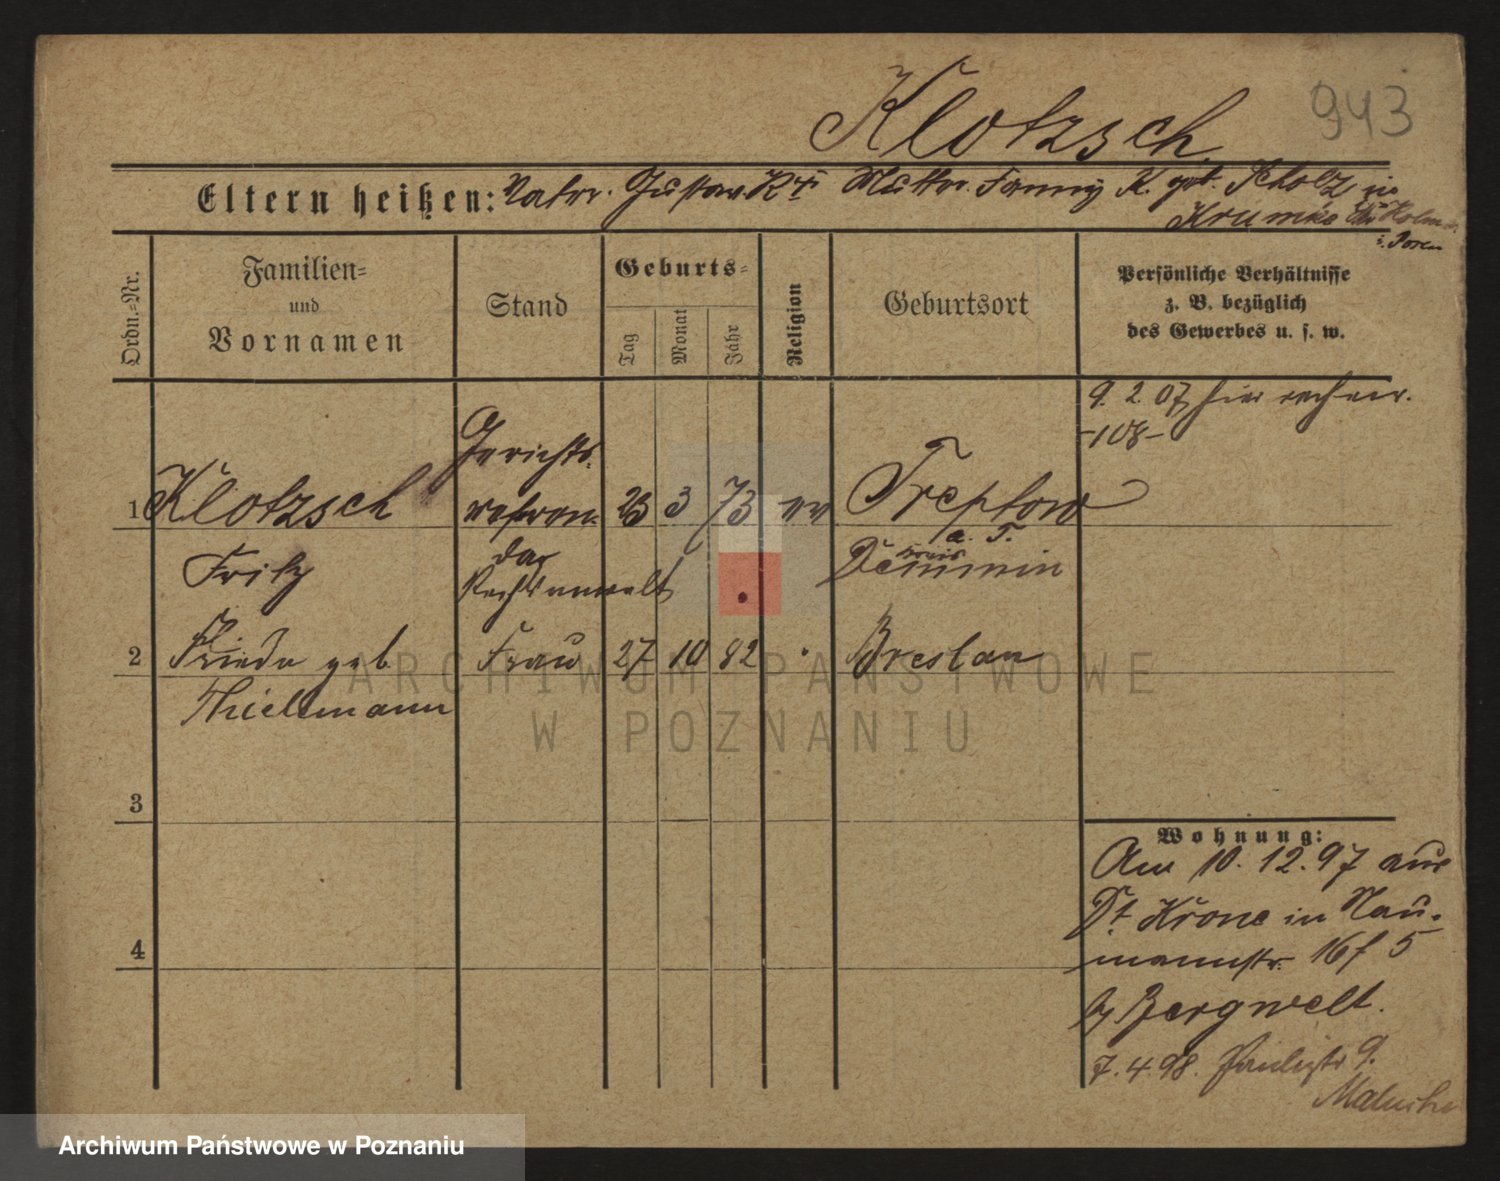 943
Klotzsch
Eltern heißen: Vater. Gustav K † Mutter. Fanny K. geb. Scholz in
Krumke
i. Posen
Ordn.-Nr.
Familien-
und
Vornamen
Stand
Geburts-
Tag
Monat
Jahr
Religion
Geburtsort
Persönliche Verhältnisse
z. B. bezüglich
des Gewerbes u. s. w.
9. 2. 07 hier
-108-
Gerichts-
1 Klotzsch referen- 23 3 73 ev Treptow
a. T.
Fritz dar Kreis Demmin
Rechtsanwalt
2 Frieda geb. Frau 27 10 82 Breslau
Thielemann
3
4
Wohnung:
Am 10. 12. 97 aus
Dt. Krone in Nau-
mannstr. 16 f 5
by Bergwelt.
7. 4. 98. Paulistr 9.
ARCHIWUM PAŃSTWOWE
W POZNANIU
Archiwum Państwowe w Poznaniu